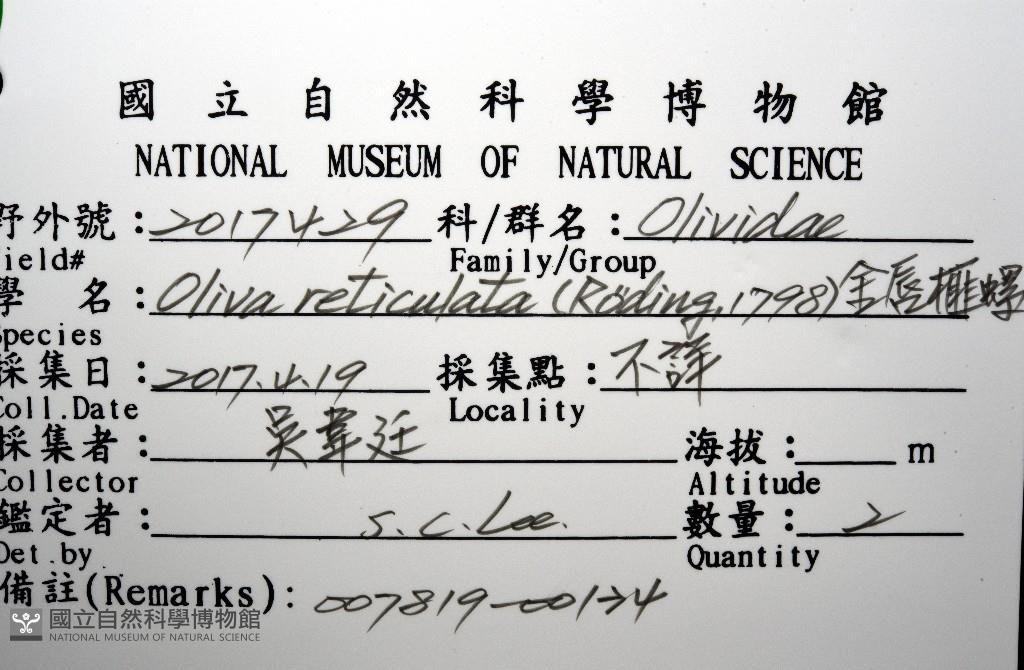 國立自然科學博物館
NATIONAL MUSEUM OF NATURAL SCIENCE
野外號：2017 4 29 科/群名：Olividae
ield# Family/Group
學名：Oliva reticulata (Röding, 1798) 金唇榧螺
pecies
採集日：2017.4.19 採集點：不詳
Coll.Date Locality
採集者：吳韋廷 海拔： m
Collector Altitude
鑑定者：S.C. Lee. 數量：2
Det.by Quantity
備註(Remarks)：007819-00124
國立自然科學博物館
NATIONAL MUSEUM OF NATURAL SCIENCE